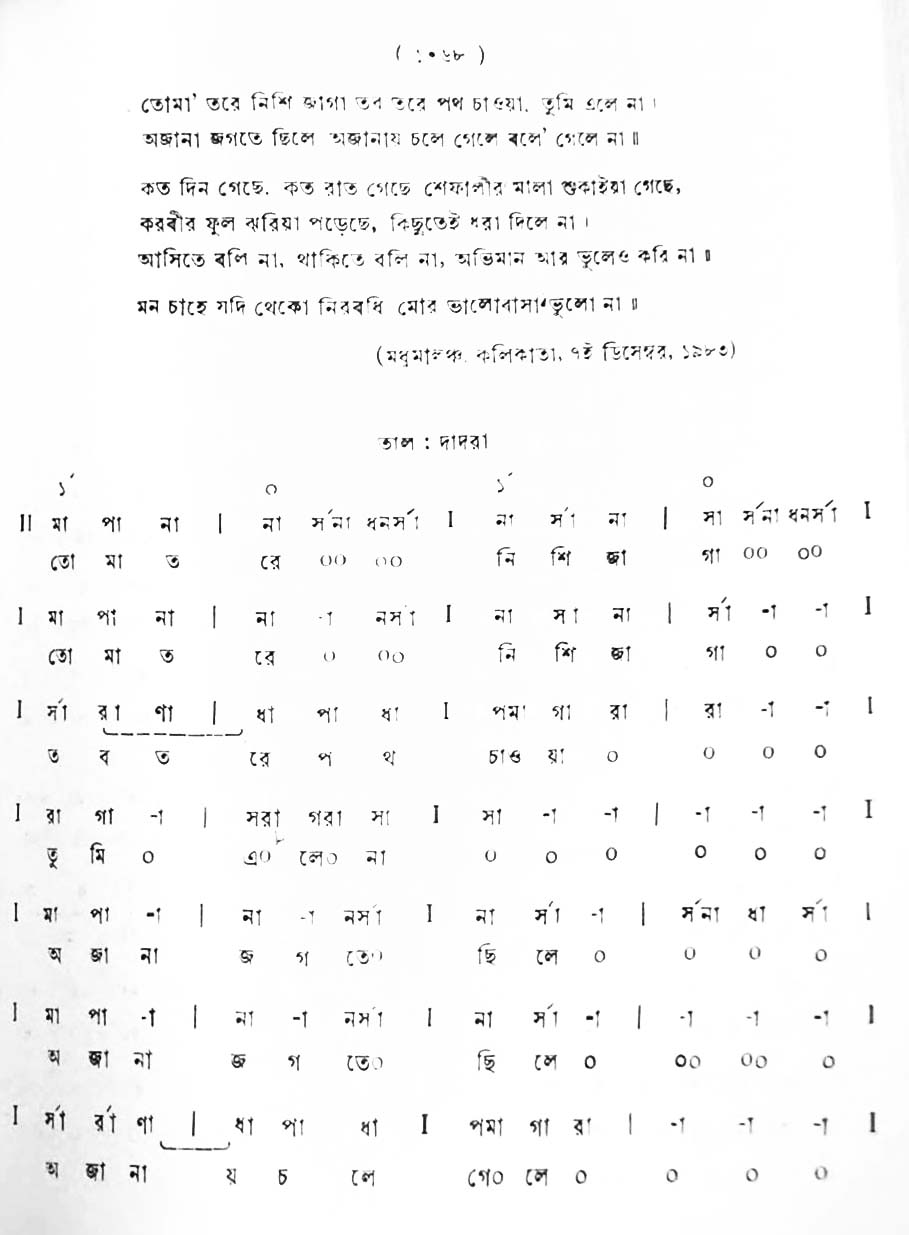 ( ১০৬৮ )
তোমা' তরে নিশি জাগা তব তরে পথ চাওয়া, তুমি এলে না ।
অজানা জগতে ছিলে অজানায় চলে গেলে বলে' গেলে না ॥
কত দিন গেছে, কত রাত গেছে শেফালীর মালা শুকাইয়া গেছে,
করবীর ফুল ঝরিয়া পড়েছে, কিছুতেই ধরা দিলে না ।
আসিতে বলি না, থাকিতে বলি না, অভিমান আর ভুলেও করি না ॥
মন চাহে যদি থেকো নিরবধি মোর ভালোবাসা ভুলো না ॥
(মধুমালঞ্চ, কলিকাতা, ৭ই ডিসেম্বর, ১৯৮৩)
তাল : দাদরা
১´ ০ ১´ ০
II মা পা না | না র্সনা ধনর্সা I না র্সা না | র্সা র্সনা ধনর্সা I
তো মা ত রে ০০ ০০ নি শি জা গা ০০ ০০
I মা পা না | না -া নর্সা I না র্সা না | র্সা -া -া I
তো মা ত রে ০ ০০ নি শি জা গা ০ ০
I র্সা রা ণা | ধা পা ধা I পমা গা রা | রা -া -া I
ত ব ত রে প থ চাও য়া ০ ০ ০ ০
I রা গা -া | সরা গরা সা I সা -া -া | -া -া -া I
তু মি ০ এ০ লে০ না ০ ০ ০ ০ ০ ০
I মা পা -া | না -া নর্সা I না র্সা -া | র্সনা ধা র্সা I
অ জা না জ গ তে০ ছি লে ০ ০ ০ ০
I মা পা -া | না -া নর্সা I না র্সা -া | -া -া -া I
অ জা না জ গ তে০ ছি লে ০ ০০ ০০ ০
I র্সা র্রা ণা | ধা পা ধা I পমা গা রা | -া -া -া I
অ জা না য় চ লে গে০ লে ০ ০ ০ ০